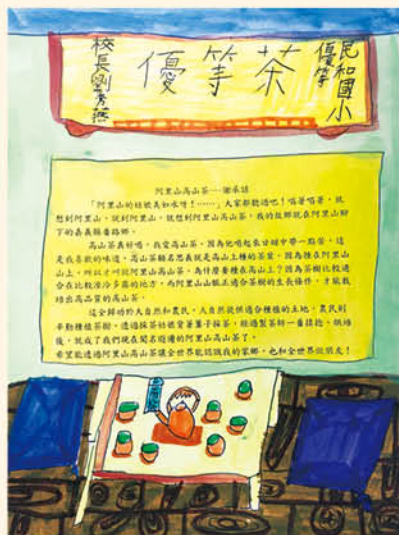 民和國小
優等
優等茶
校長劉秀燕
阿里山高山茶---謝承
「阿里山的姑娘美如水呀！……」大家都聽過吧！唱著唱著，就
想到阿里山，說到阿里山，就想到阿里山高山茶，我的故鄉就在阿里山腳
下的嘉義縣番路鄉。
高山茶真好喝，我愛高山茶，因為他喝起來甘甜中帶一點苦，這
是我喜歡的味道，高山茶顧名思義就是高山上種的茶葉，因為種在阿里山
山上，所以才叫做阿里山高山茶。為什麼要種在高山上？因為茶樹比較適
合在比較溼冷多霧的地方，而阿里山山脈正適合茶樹的生長條件，才能栽
培出高品質的高山茶。
這全歸功於大自然和農民，大自然提供適合種植的土地，農民則
辛勤種植茶樹，透過採茶姑娘背著簍子採茶，經過製茶師一番揉捻、烘焙
後，就成了我們現在聞名遐邇的阿里山高山茶了。
希望能透過阿里山高山茶讓全世界能認識我的家鄉，也和全世界做朋友！